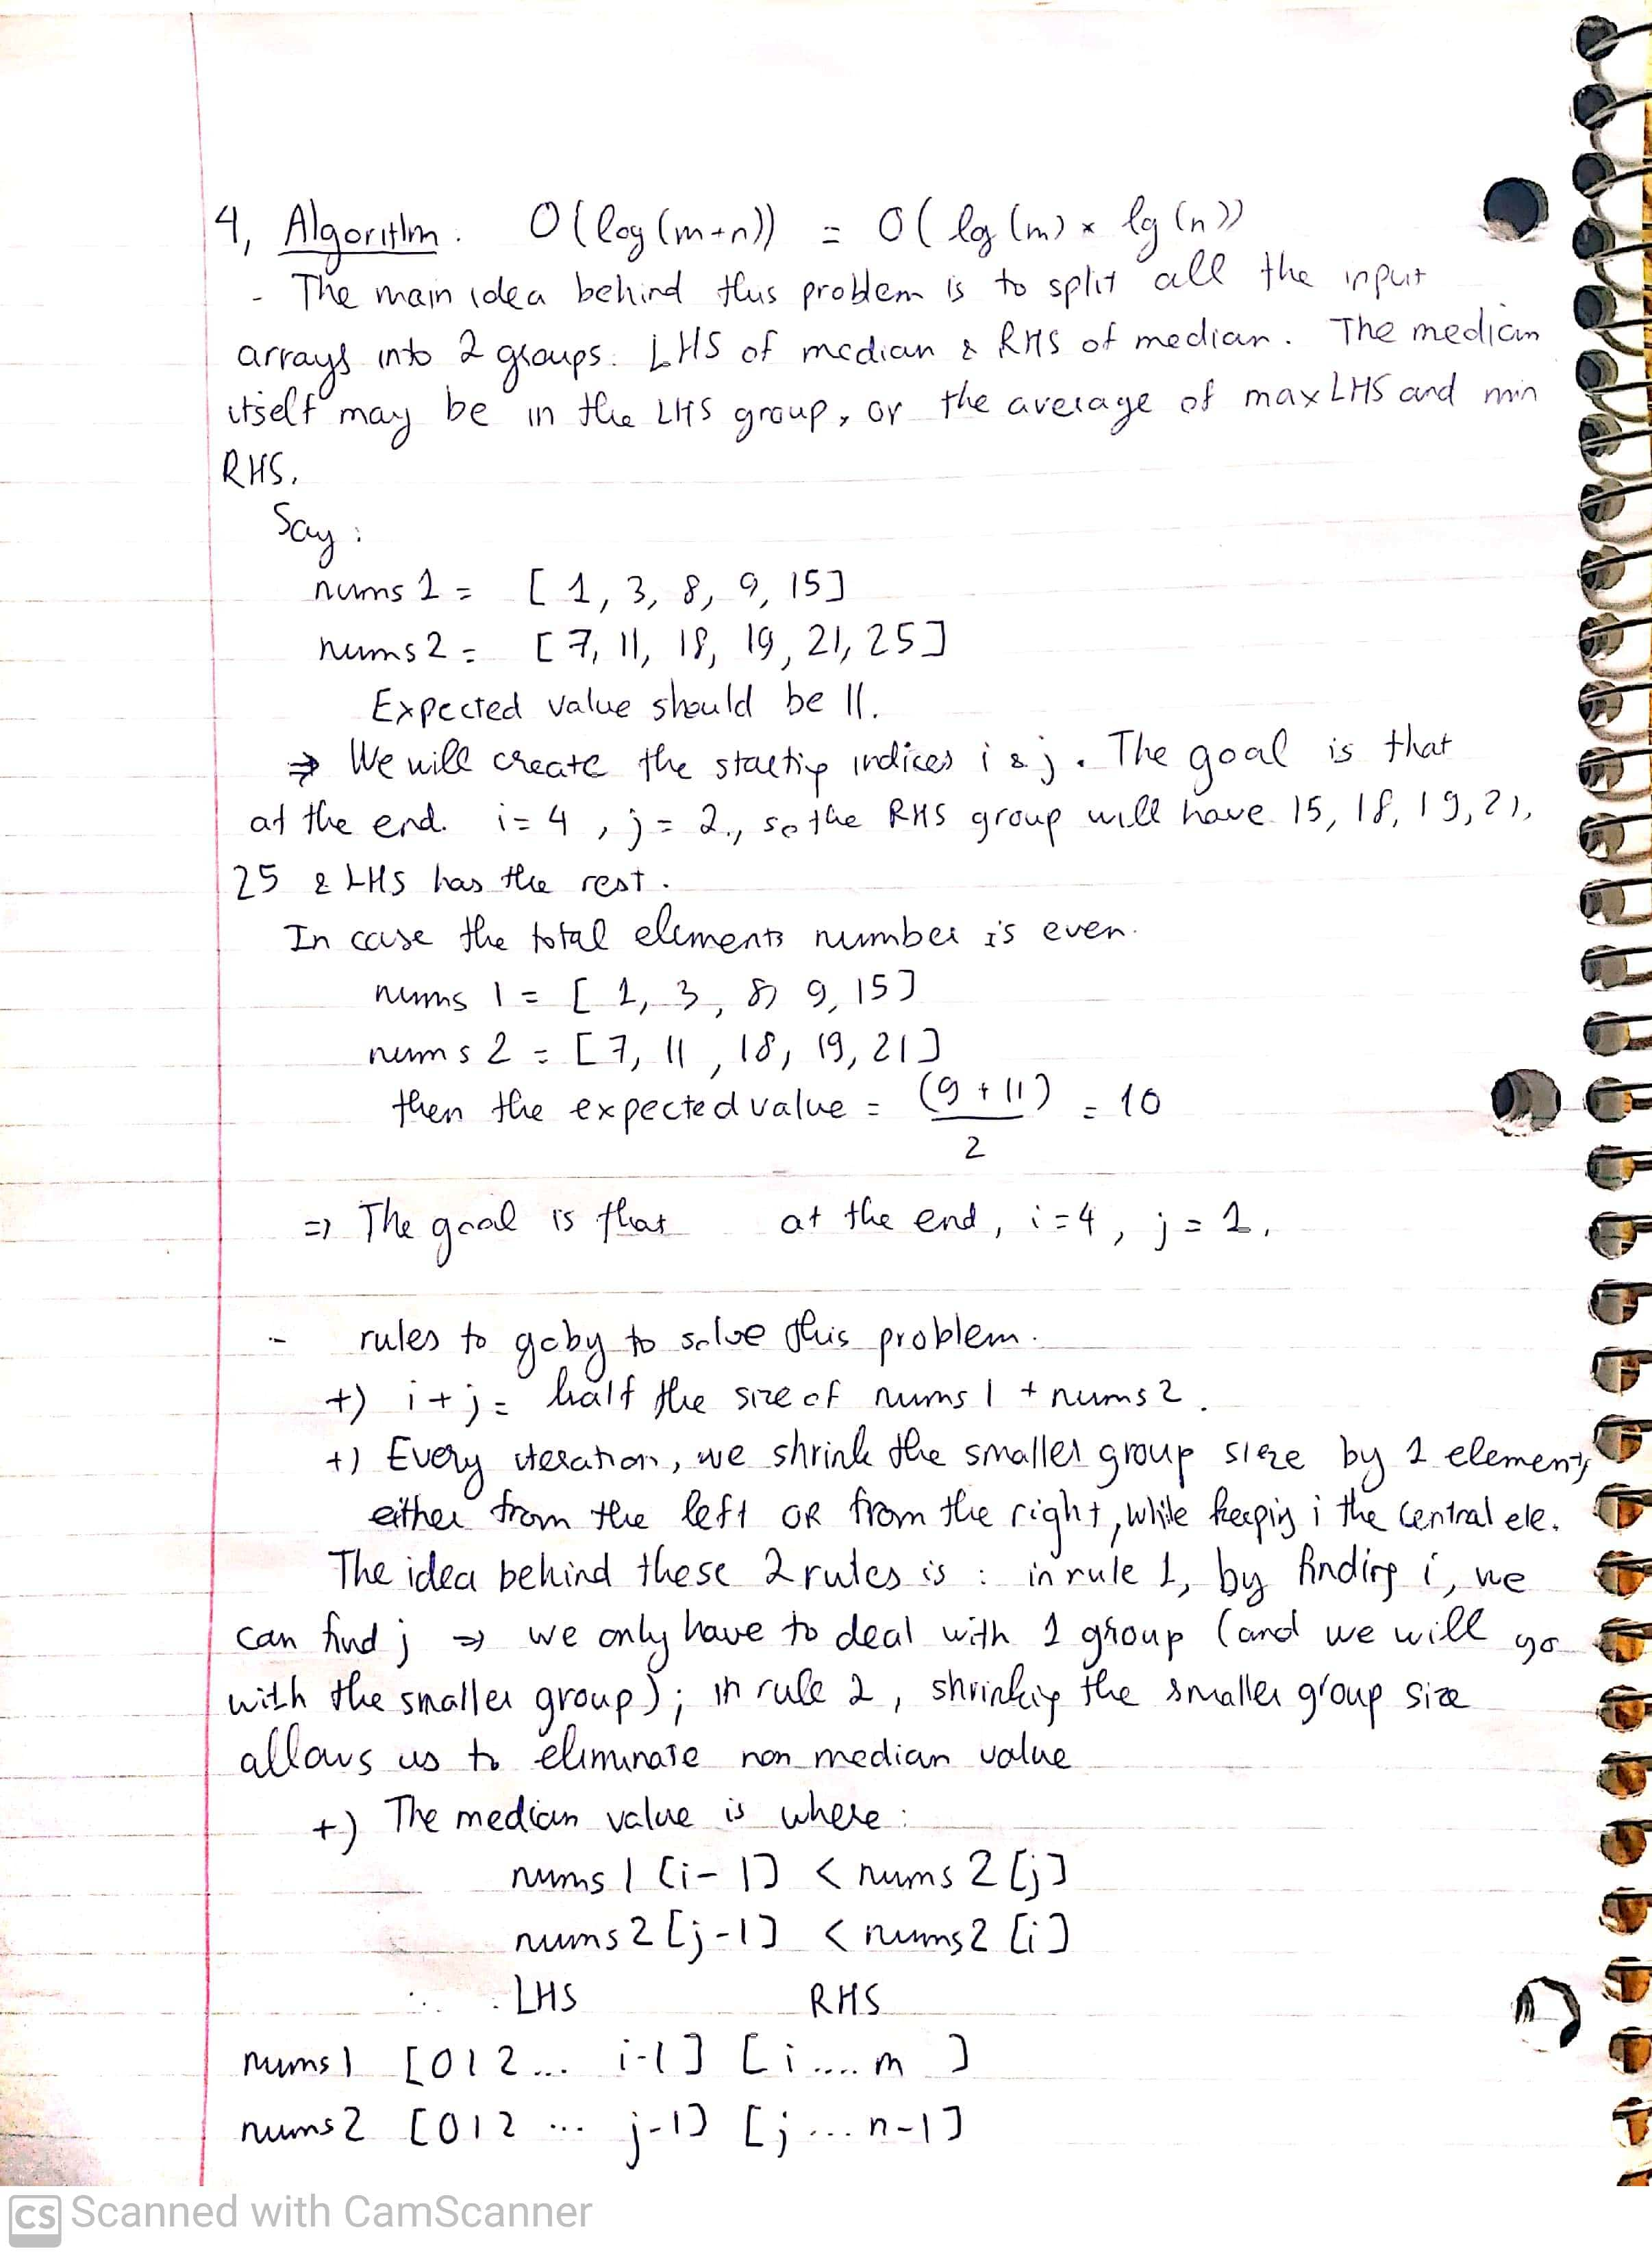 4, Algorithm. O(log(m+n)) = O(lg(m) x lg(n))
- The main idea behind this problem is to split all the input
arrays into 2 groups. LHS of median & RHS of median. The median
itself may be in the LHS group, or the average of max LHS and min
RHS.
Say:
nums 1 = [1, 3, 8, 9, 15]
nums 2 = [7, 11, 18, 19, 21, 25]
Expected value should be 11.
⇒ We will create the starting indices i & j. The goal is that
at the end. i = 4, j = 2., so the RHS group will have 15, 18, 19, 21,
25 & LHS has the rest.
In case the total elements number is even.
nums 1 = [1, 3, 8, 9, 15]
nums 2 = [7, 11, 18, 19, 21]
then the expected value = (9 + 11) = 10
2
=> The goal is that at the end, i = 4, j = 1.
- rules to go by to solve this problem.
+) i + j = half the size of nums 1 + nums 2.
+) Every iteration, we shrink the smaller group sieze by 1 element,
either from the left OR from the right, while keeping i the central ele.
The idea behind these 2 rules is : in rule 1, by finding i, we
can find j => we only have to deal with 1 group (and we will go
with the smaller group); in rule 2, shrinking the smaller group size
allows us to eliminate non median value
+) The median value is where:
nums 1 [i-1] < nums 2 [j]
nums 2 [j-1] < nums 2 [i]
LHS RHS
nums 1 [0 1 2 ... i-1] [i .... m ]
nums 2 [0 1 2 ... j-1] [j ... n-1]
CS Scanned with CamScanner